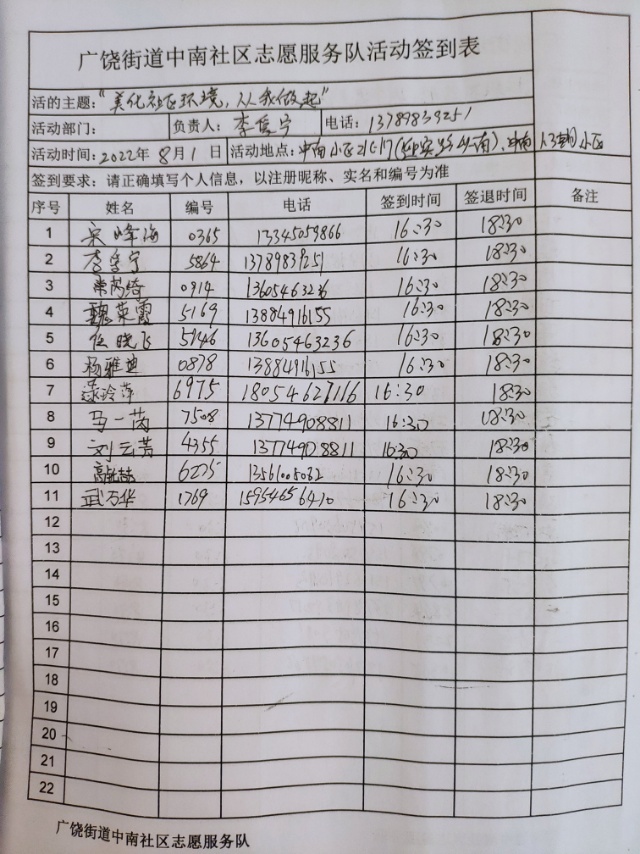 广饶街道中南社区志愿服务队活动签到表
活的主题：“美化社区环境，从我做起”
活动部门： 负责人：李雪宁 电话：13789839251
活动时间：2022年8月1日 活动地点：中南小区
签到要求：请正确填写个人信息，以注册昵称、实名和编号为准
序号 姓名 编号 电话 签到时间 签退时间 备注
1 宋峰海 0365 13345059866 16:30 18:30
2 李雪宁 5864 13789839251 16:30 18:30
3 0914 13605463236 16:30 18:30
4 魏荣霞 5169 13884916155 16:30 18:30
5 任晓飞 5946 13605463236 16:30 18:30
6 杨雅迪 0878 13884916155 16:30 18:30
7 玲萍 6975 18054627116 16:30 18:30
8 马一芮 7508 13774908811 16:30 18:30
9 刘云芳 4355 13774908811 16:30 18:30
10 6275 13561005032 16:30 18:30
11 武万华 1769 15954656410 16:30 18:30
12
13
14
15
16
17
18
19
20
21
22
广饶街道中南社区志愿服务队